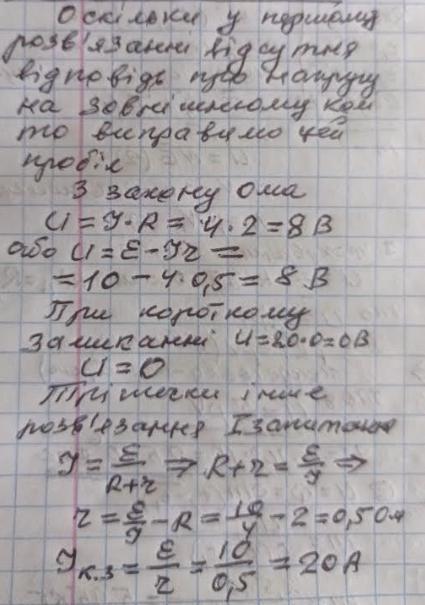 Оскільки у першому
розв'язанні відсутня
відповідь про напругу
на зовнішньому колі
то виправимо цей
пробіл
З закону Ома
U = J·R = 4·2 = 8 В
або U = ε - Jr =
= 10 - 4·0,5 = 8 В
При короткому
замиканні U=20·0=0В
U = 0
Трішечки інше
розв'язання I запитання
J = ε/(R+r) ⇒ R+r = ε/J ⇒
r = ε/J - R = 10/4 - 2 = 0,5 Ом
Jк.з = ε/r = 10/0,5 = 20 А